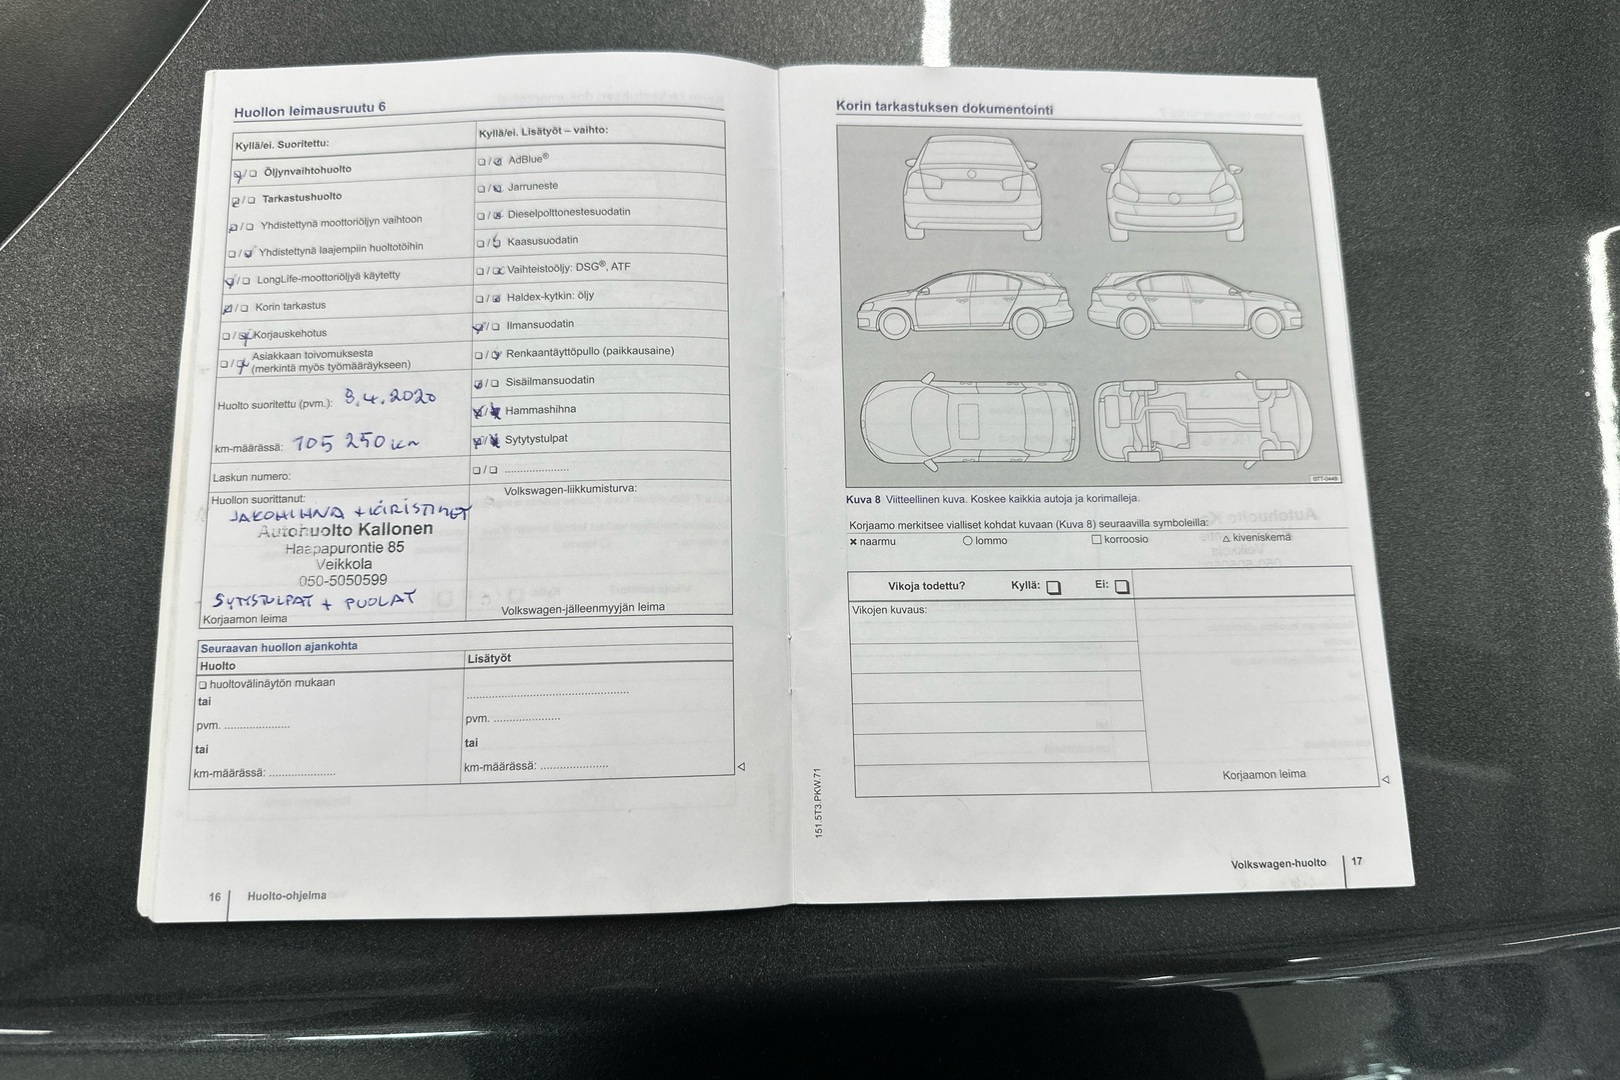 Huollon leimausruutu 6
Kyllä/ei. Suoritettu:
Öljynvaihtohuolto
Tarkastushuolto
Yhdistettynä moottoriöljyn vaihtoon
Yhdistettynä laajempiin huoltotöihin
LongLife-moottoriöljyä käytetty
Korin tarkastus
Korjauskehotus
Asiakkaan toivomuksesta
(merkintä myös työmääräykseen)
Huolto suoritettu (pvm.): 8.4.2020
km-määrässä: 105 250 km
Laskun numero:
Huollon suorittanut:
JAKOHIHNA + KIRISTIMET
Autohuolto Kallonen
Haapapurontie 85
Veikkola
050-5050599
SYTYSTULPAT + PUOLAT
Korjaamon leima
Kyllä/ei. Lisätyöt – vaihto:
AdBlue®
Jarruneste
Dieselpolttonestesuodatin
Kaasusuodatin
Vaihteistoöljy: DSG®, ATF
Haldex-kytkin: öljy
Ilmansuodatin
Renkaantäyttöpullo (paikkausaine)
Sisäilmansuodatin
Hammashihna
Sytytystulpat
Volkswagen-liikkumisturva:
Volkswagen-jälleenmyyjän leima
Seuraavan huollon ajankohta
Huolto
huoltovälinäytön mukaan
tai
pvm.
tai
km-määrässä:
Lisätyöt
pvm.
tai
km-määrässä:
16 Huolto-ohjelma
Korin tarkastuksen dokumentointi
Kuva 8 Viitteellinen kuva. Koskee kaikkia autoja ja korimalleja.
Korjaamo merkitsee vialliset kohdat kuvaan (Kuva 8) seuraavilla symboleilla:
× naarmu ○ lommo □ korroosio △ kiveniskemä
Vikoja todettu? Kyllä: Ei:
Vikojen kuvaus:
Korjaamon leima
151.5T3.PKW.71
Volkswagen-huolto 17